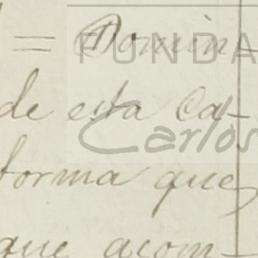 = Domin-
FUNDA
de esta Ca-
Carlos
forma que
que acom-